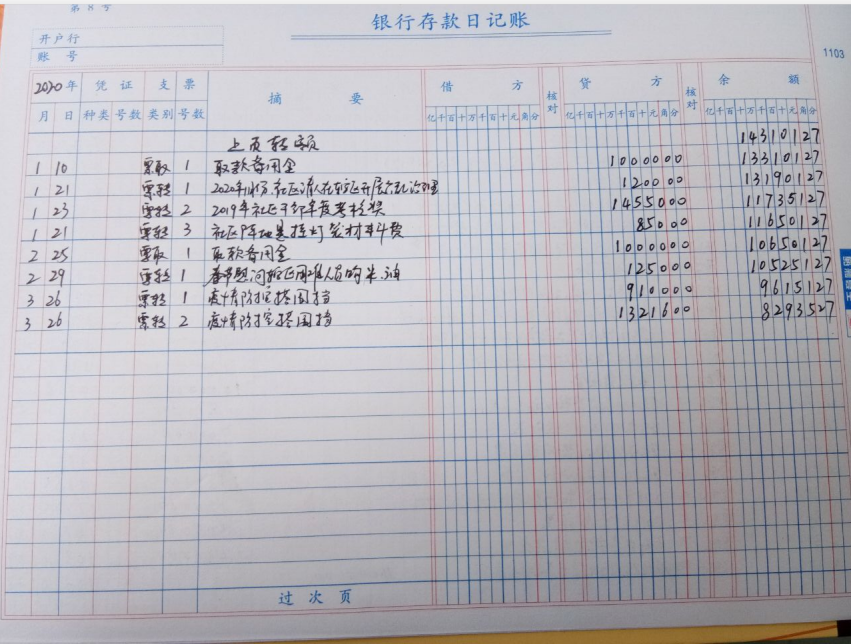 第 8 号
银行存款日记账
开户行
账 号
1103
2020年 凭 证 支 票 摘 要 借 方 核对 贷 方 核对 余 额
月 日 种类 号数 类别 号数 亿千百十万千百十元角分 亿千百十万千百十元角分 亿千百十万千百十元角分
上页转额 14310127
1 10 票取 1 取款备用金 1000000 13310127
1 21 票转 1 2020年 社区 120000 13190127
1 23 票转 2 2019年社区干部年度考核奖 1455000 11735127
1 21 票转 3 社区 挂灯 材料费 85000 11650127
2 25 票取 1 取款备用金 1000000 10650127
2 29 票转 1 春节慰问 人员购米.油 125000 10525127
3 26 票转 1 疫情防控搭围挡 910000 9615127
3 26 票转 2 疫情防控搭围挡 1321600 8293527
过 次 页